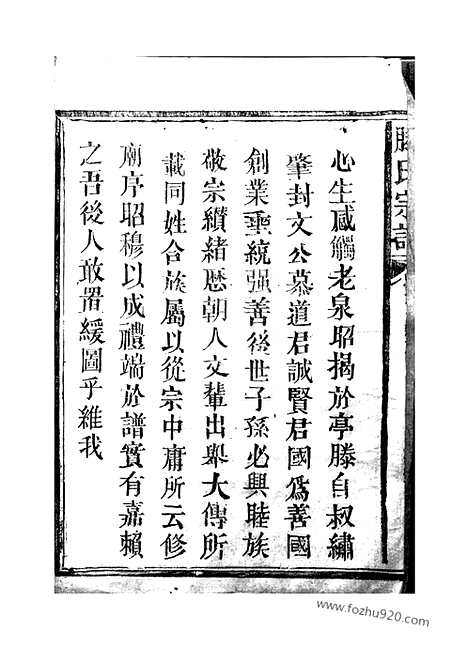 滕氏宗譜
心生感觸老泉昭揭於亭滕自叔繡
肇封文公慕道君誠賢君國爲善國
創業垂統强善後世子孫必興睦族
敬宗纘緒歷朝人文輩出舉大傳所
載同姓合族屬以從宗中庸所云修
廟序昭穆以成禮端於譜實有嘉賴
之吾後人敢置緩圖乎維我
www.fozhu920.com